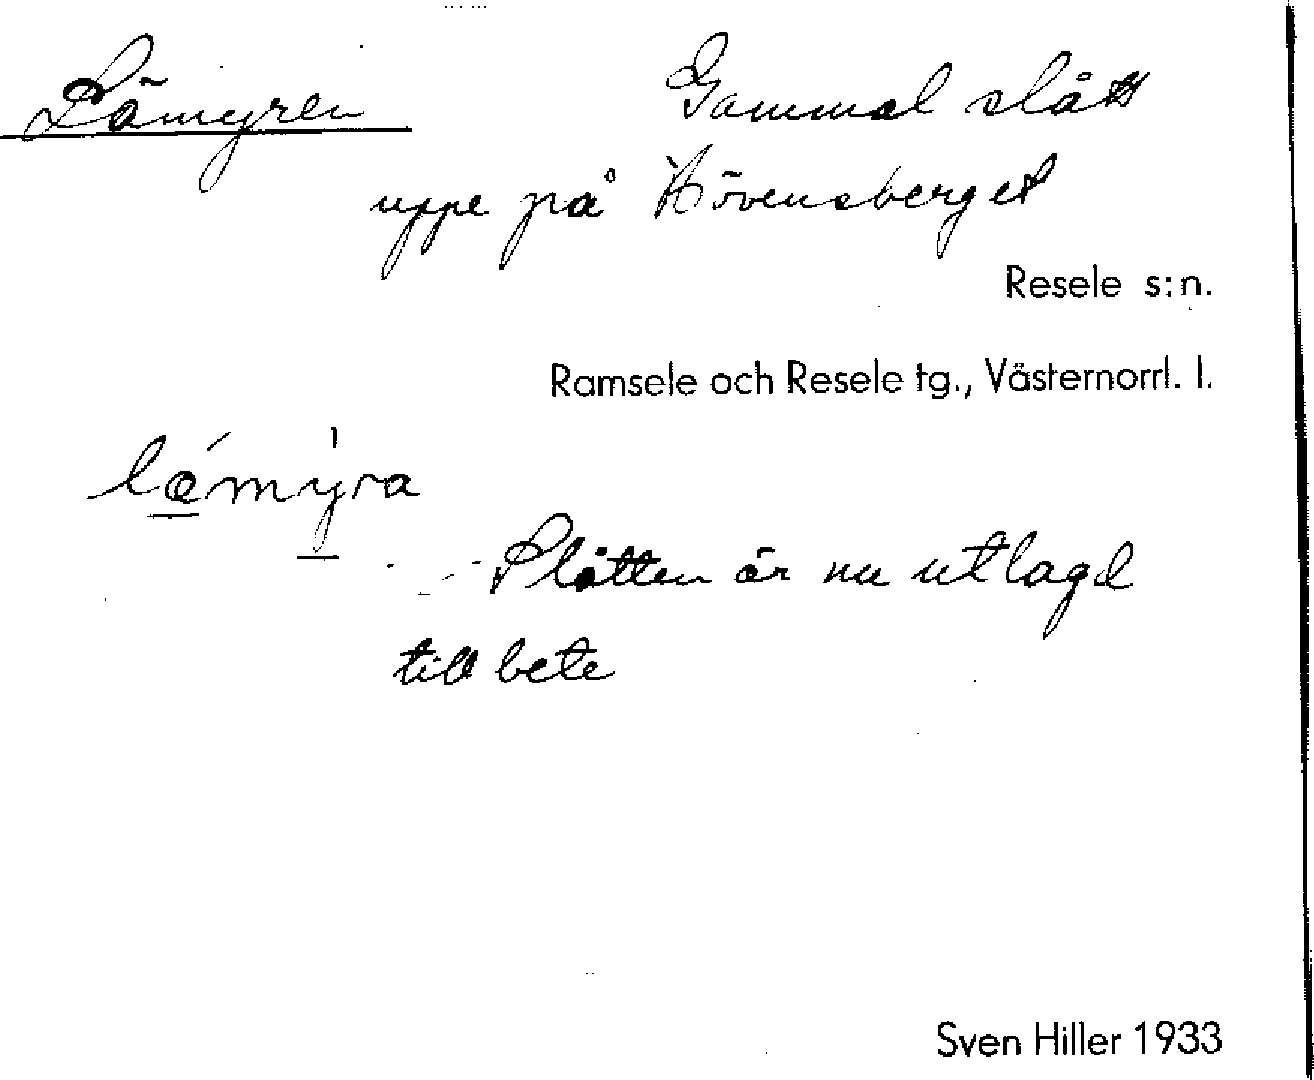 Lömyren Gammal slått
uppe på Hövensberget
Resele s:n.
Ramsele och Resele tg., Västernorrl. l.
Slåtten är nu utlagd
till bete
Sven Hiller 1933